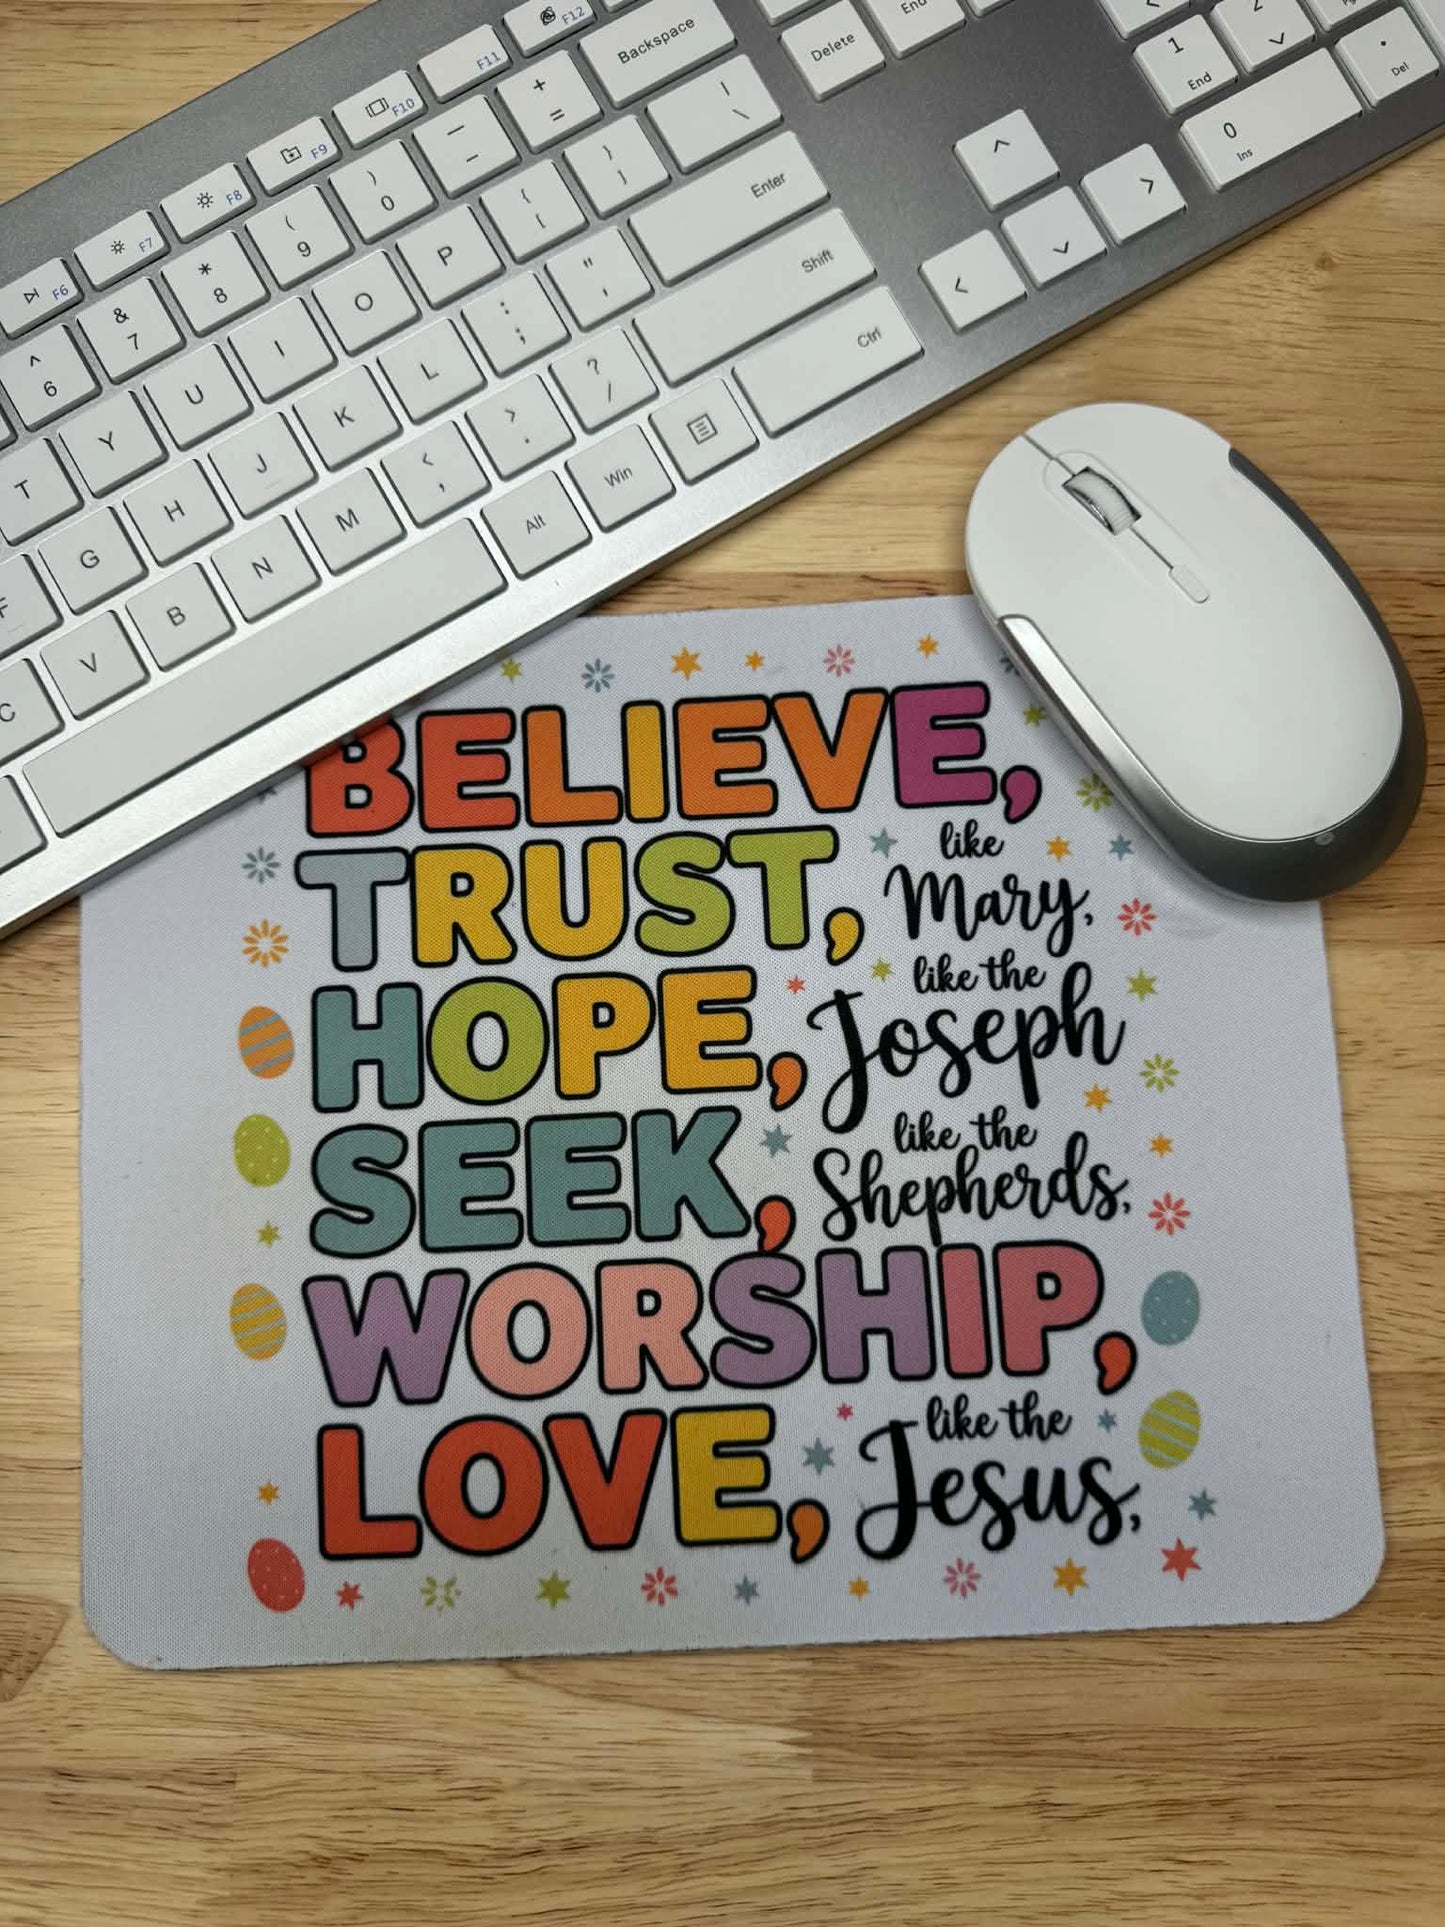 F12
Backspace
Delete
End
F11
+ =
| \
1 End
2
. Del
F10
_ -
} ]
Enter
0 Ins
F9
) 0
{ [
" '
Shift
F8
( 9
P
: ;
? /
Ctrl
F7
* 8
O
L
> .
Win
F6
& 7
I
K
< ,
Alt
^ 6
U
J
M
Y
H
N
T
G
B
F
V
C
BELIEVE,
TRUST, like Mary,
HOPE, like the Joseph
SEEK, like the Shepherds,
WORSHIP,
LOVE, like the Jesus,